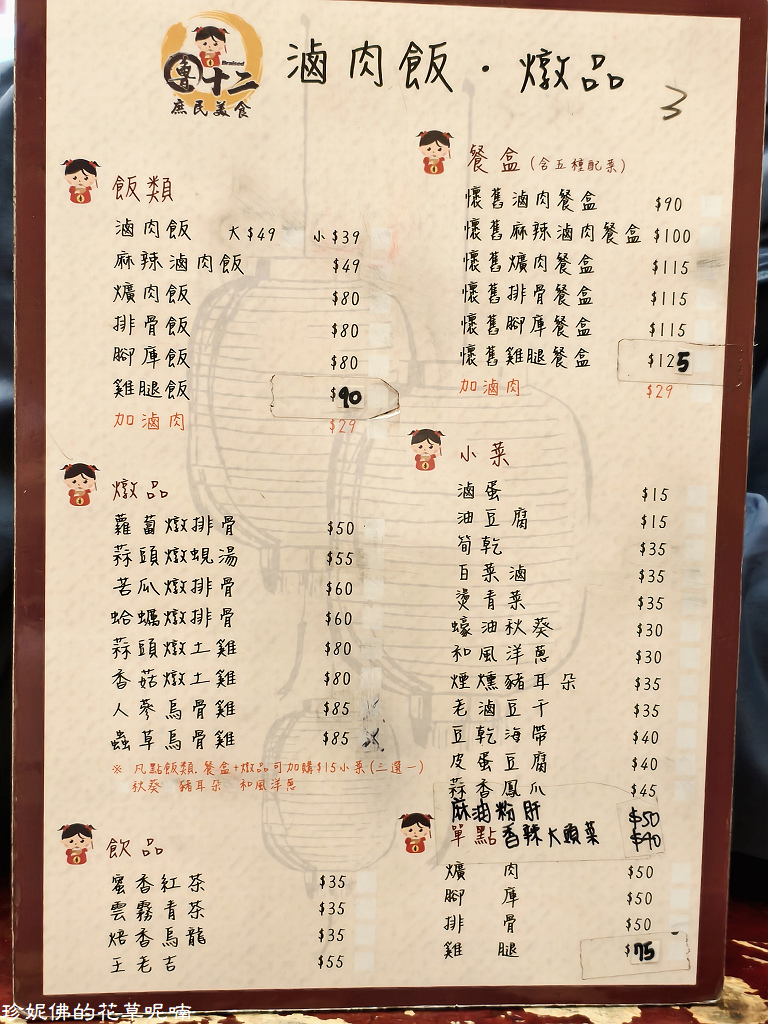 Braised
壽十二
庶民美食
滷肉飯・燉品
3
飯類
滷肉飯 大$49 小$39
麻辣滷肉飯 $49
爌肉飯 $80
排骨飯 $80
腳庫飯 $80
雞腿飯 $90
加滷肉 $29
燉品
蘿蔔燉排骨 $50
蒜頭燉蜆湯 $55
苦瓜燉排骨 $60
蛤蠣燉排骨 $60
蒜頭燉土雞 $80
香菇燉土雞 $80
人蔘烏骨雞 $85
蟲草烏骨雞 $85
※ 凡點飯類.餐盒+燉品可加購$15小菜(三選一)
秋葵 豬耳朵 和風洋蔥
飲品
蜜香紅茶 $35
雲霧青茶 $35
焙香烏龍 $35
王老吉 $55
餐盒(含五種配菜)
懷舊滷肉餐盒 $90
懷舊麻辣滷肉餐盒 $100
懷舊爌肉餐盒 $115
懷舊排骨餐盒 $115
懷舊腳庫餐盒 $115
懷舊雞腿餐盒 $125
加滷肉 $29
小菜
滷蛋 $15
油豆腐 $15
筍乾 $35
白菜滷 $35
燙青菜 $35
蠔油秋葵 $30
和風洋蔥 $30
煙燻豬耳朵 $35
老滷豆干 $35
豆乾海帶 $40
皮蛋豆腐 $40
蒜香鳳爪 $45
麻油粉肝 $50
單點 香辣大頭菜 $40
爌肉 $50
腳庫 $50
排骨 $50
雞腿 $75
珍妮佛的花草呢喃